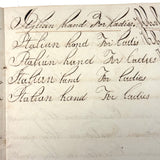 Italian hand For Ladies
Italian hand For ladie
Italian hand For ladies
Italian hand For ladies
Italian hand For Ladies
Italian hand For ladies